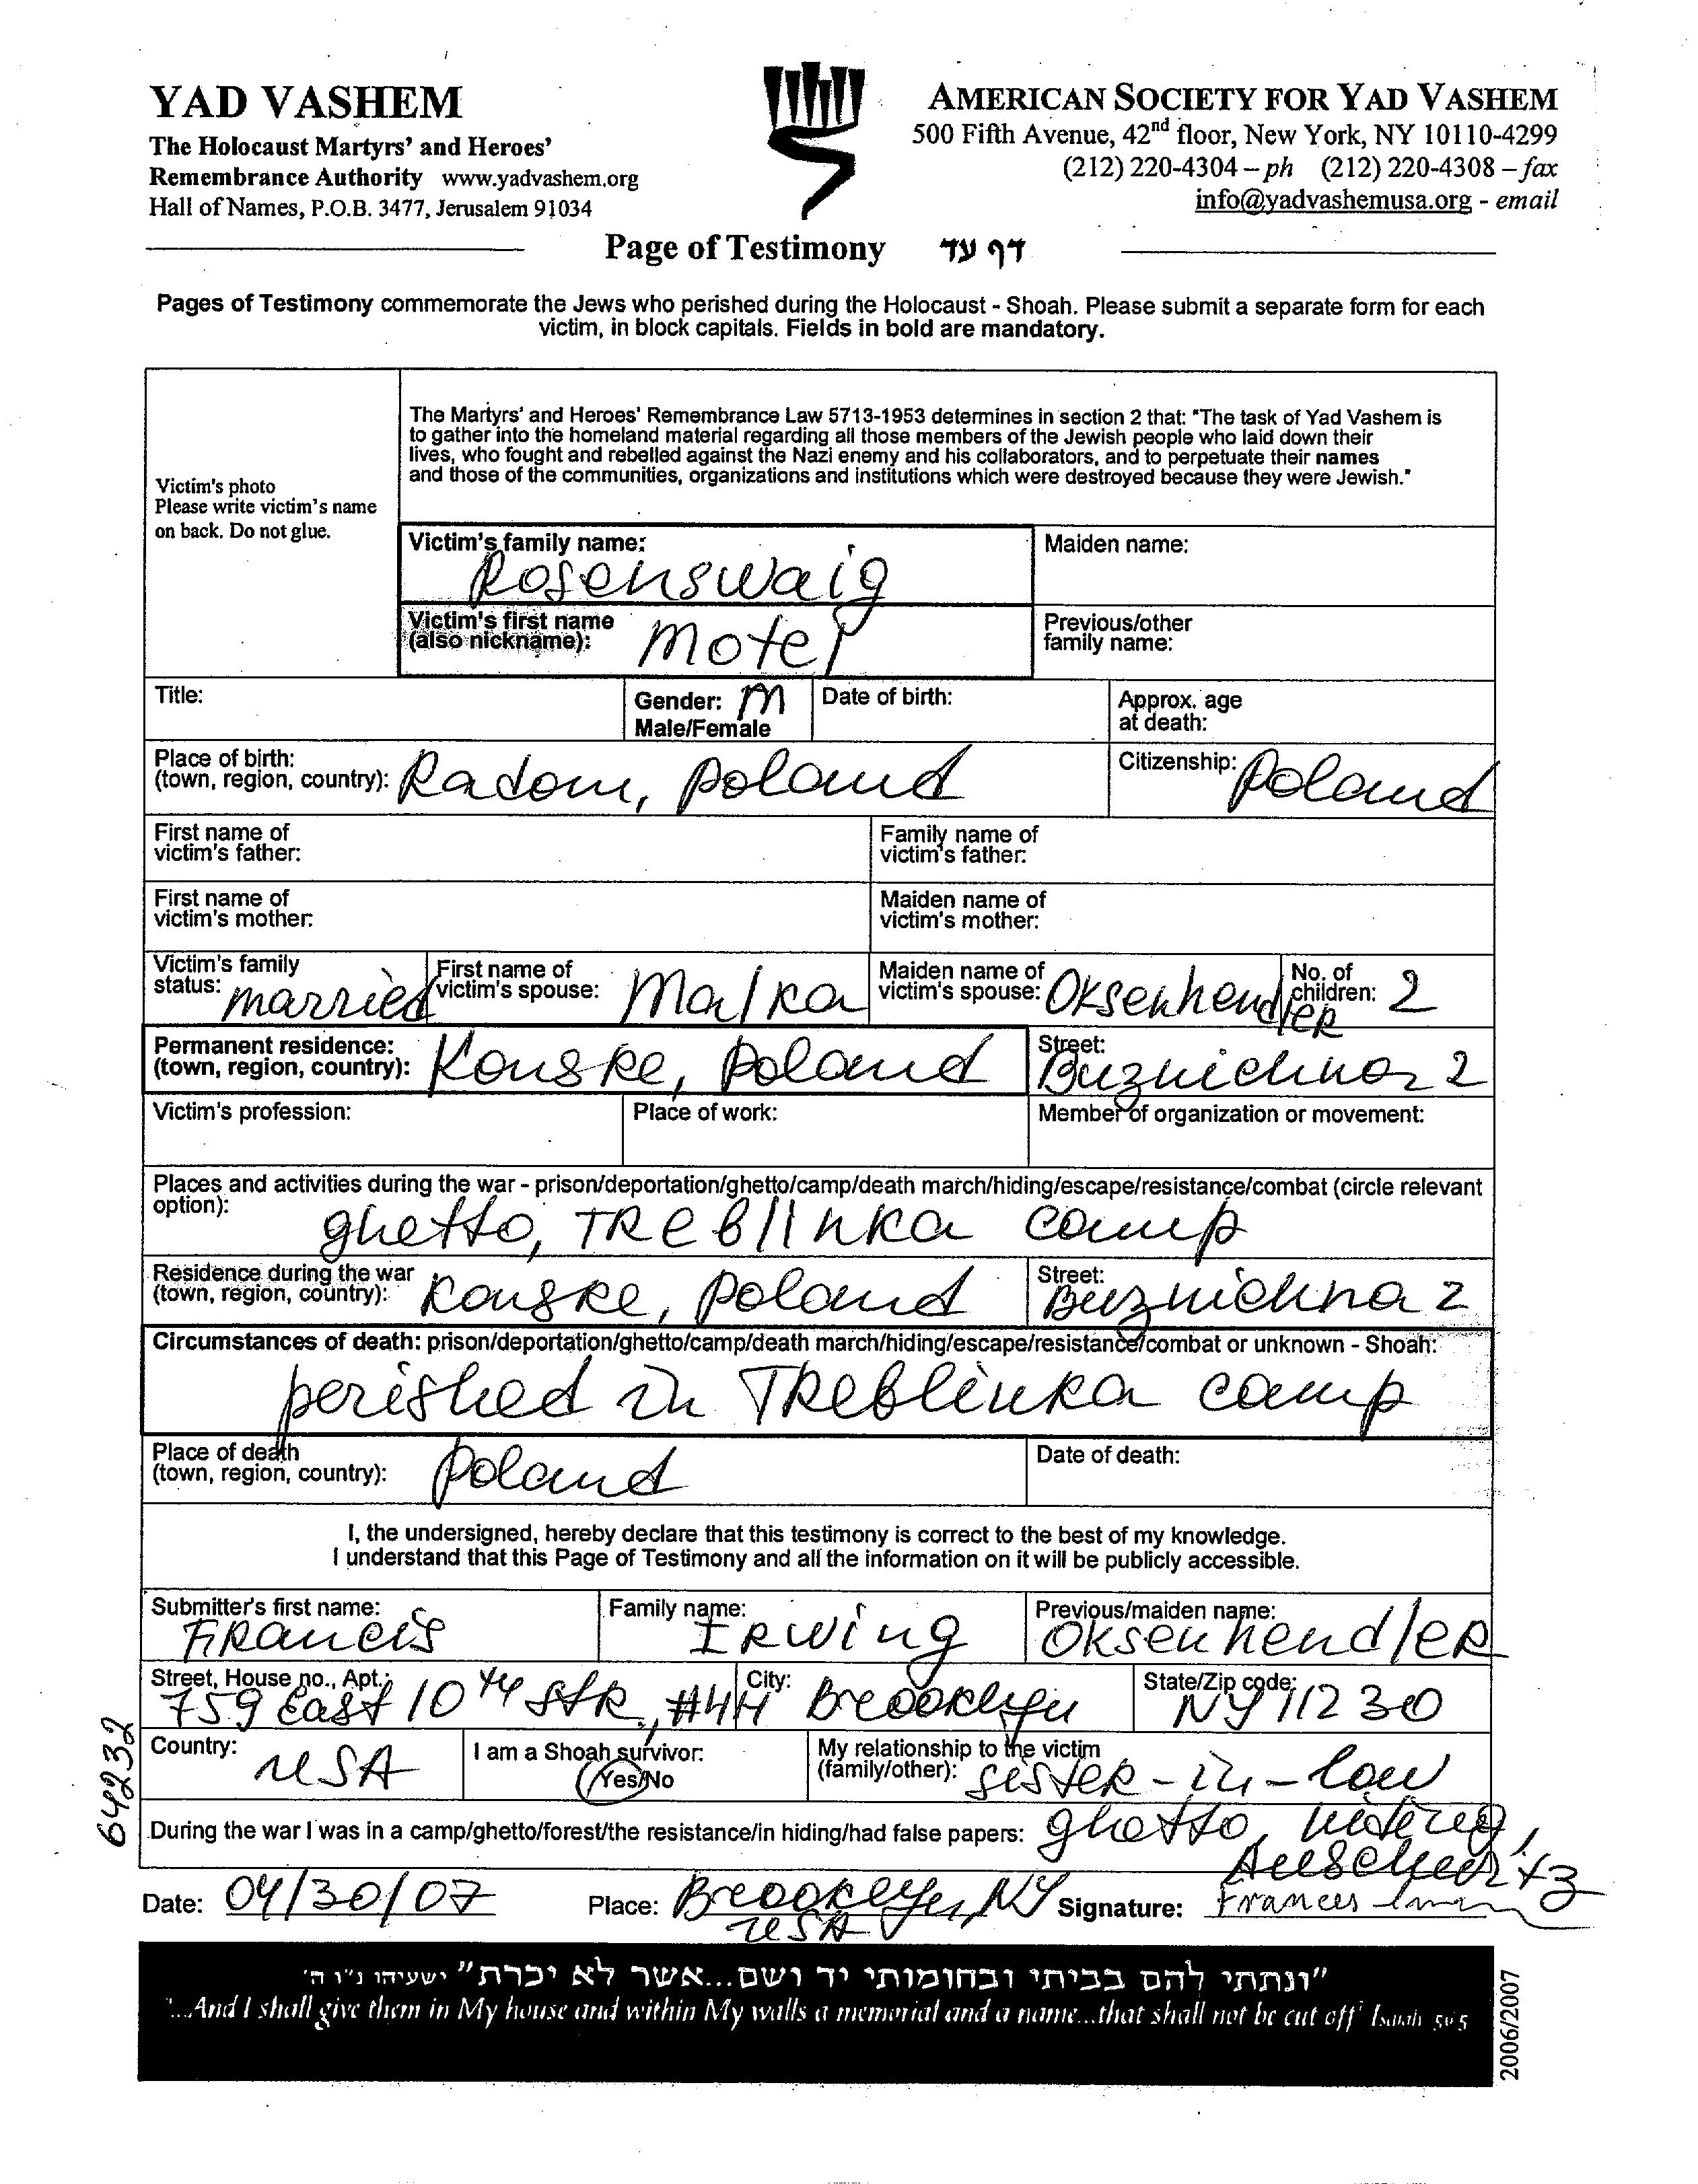 YAD VASHEM
The Holocaust Martyrs' and Heroes'
Remembrance Authority www.yadvashem.org
Hall of Names, P.O.B. 3477, Jerusalem 91034
AMERICAN SOCIETY FOR YAD VASHEM
500 Fifth Avenue, 42nd floor, New York, NY 10110-4299
(212) 220-4304 – ph (212) 220-4308 – fax
info@yadvashemusa.org - email
Page of Testimony דף עד
Pages of Testimony commemorate the Jews who perished during the Holocaust - Shoah. Please submit a separate form for each
victim, in block capitals. Fields in bold are mandatory.
Victim's photo
Please write victim's name
on back. Do not glue.
The Martyrs' and Heroes' Remembrance Law 5713-1953 determines in section 2 that: "The task of Yad Vashem is
to gather into the homeland material regarding all those members of the Jewish people who laid down their
lives, who fought and rebelled against the Nazi enemy and his collaborators, and to perpetuate their names
and those of the communities, organizations and institutions which were destroyed because they were Jewish."
Victim's family name: Rosenswaig
Maiden name:
Victim's first name
(also nickname): Motel
Previous/other
family name:
Title:
Gender: M
Male/Female
Date of birth:
Approx. age
at death:
Place of birth:
(town, region, country): Radom, Poland
Citizenship: Poland
First name of
victim's father:
Family name of
victim's father:
First name of
victim's mother:
Maiden name of
victim's mother:
Victim's family
status: married
First name of
victim's spouse: Malka
Maiden name of
victim's spouse: Oksenhendler
No. of
children: 2
Permanent residence:
(town, region, country): Konske, Poland
Street:
Buznichna 2
Victim's profession:
Place of work:
Member of organization or movement:
Places and activities during the war - prison/deportation/ghetto/camp/death march/hiding/escape/resistance/combat (circle relevant
option): ghetto, TReblinka camp
Residence during the war
(town, region, country): Konske, Poland
Street:
Buznichna 2
Circumstances of death: prison/deportation/ghetto/camp/death march/hiding/escape/resistance/combat or unknown - Shoah:
perished in TReblinka camp
Place of death
(town, region, country): Poland
Date of death:
I, the undersigned, hereby declare that this testimony is correct to the best of my knowledge.
I understand that this Page of Testimony and all the information on it will be publicly accessible.
Submitter's first name:
FRancis
Family name:
IRwing
Previous/maiden name:
OksenhendleR
Street, House no., Apt.:
759 East 10 th StR., #4H
City: Breooklyn
State/Zip code:
NY 11230
Country: USA
I am a Shoah survivor:
Yes/No
My relationship to the victim
(family/other): sisteR-in-law
During the war I was in a camp/ghetto/forest/the resistance/in hiding/had false papers: ghetto,
Date: 04/30/07
Place: Breooklyn, NY
USA
Signature: Frances
64232
"ונתתי להם בביתי ובחומותי יד ושם...אשר לא יכרת" ישעיהו נ"ו ה'
"...And I shall give them in My house and within My walls a memorial and a name...that shall not be cut off" Isaiah 56 5
2006/2007